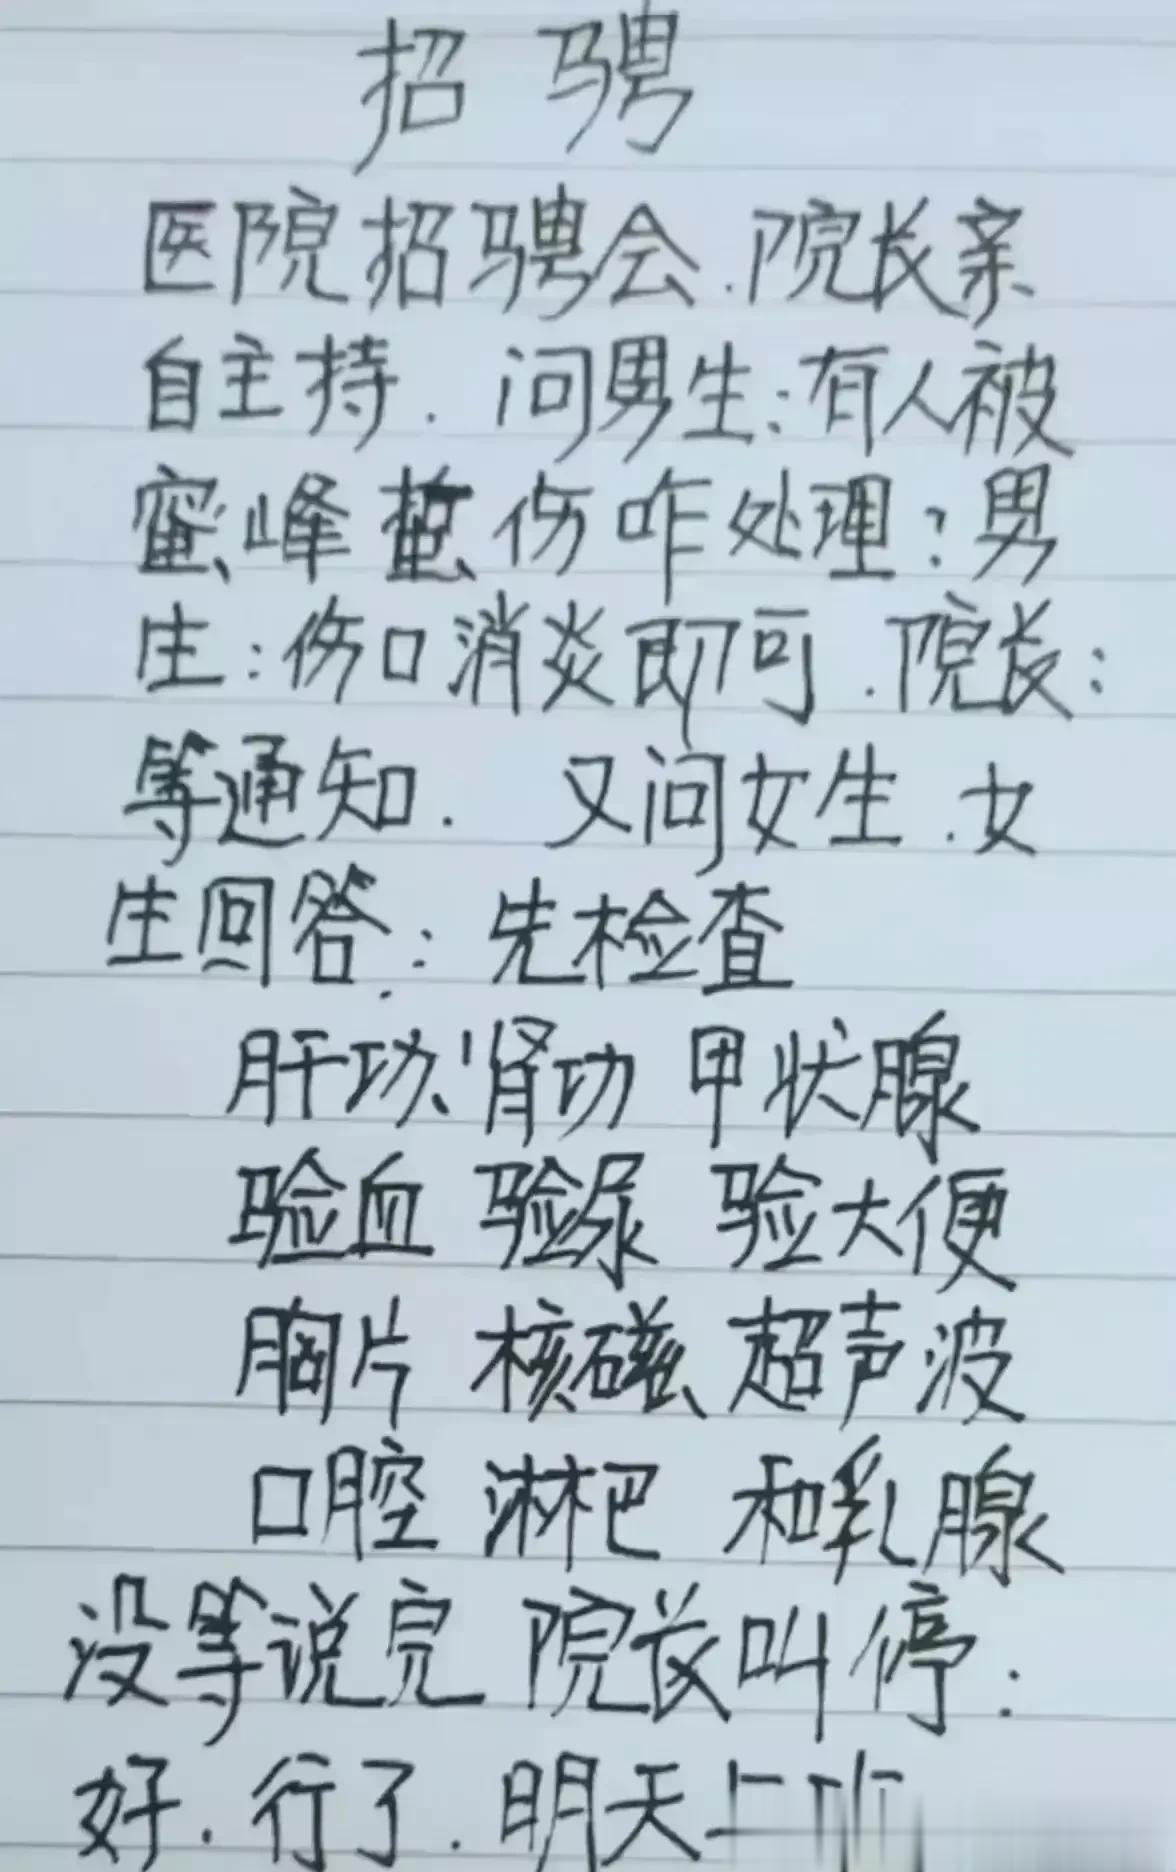 招聘
医院招聘会.院长亲
自主持.问男生:有人被
蜜峰蜇伤咋处理?男
生:伤口消炎即可.院长:
等通知.又问女生.女
生回答:先检查
肝功、肾功 甲状腺
验血 验尿 验大便
胸片 核磁 超声波
口腔 淋巴 和乳腺
没等说完 院长叫停:
好.行了.明天上